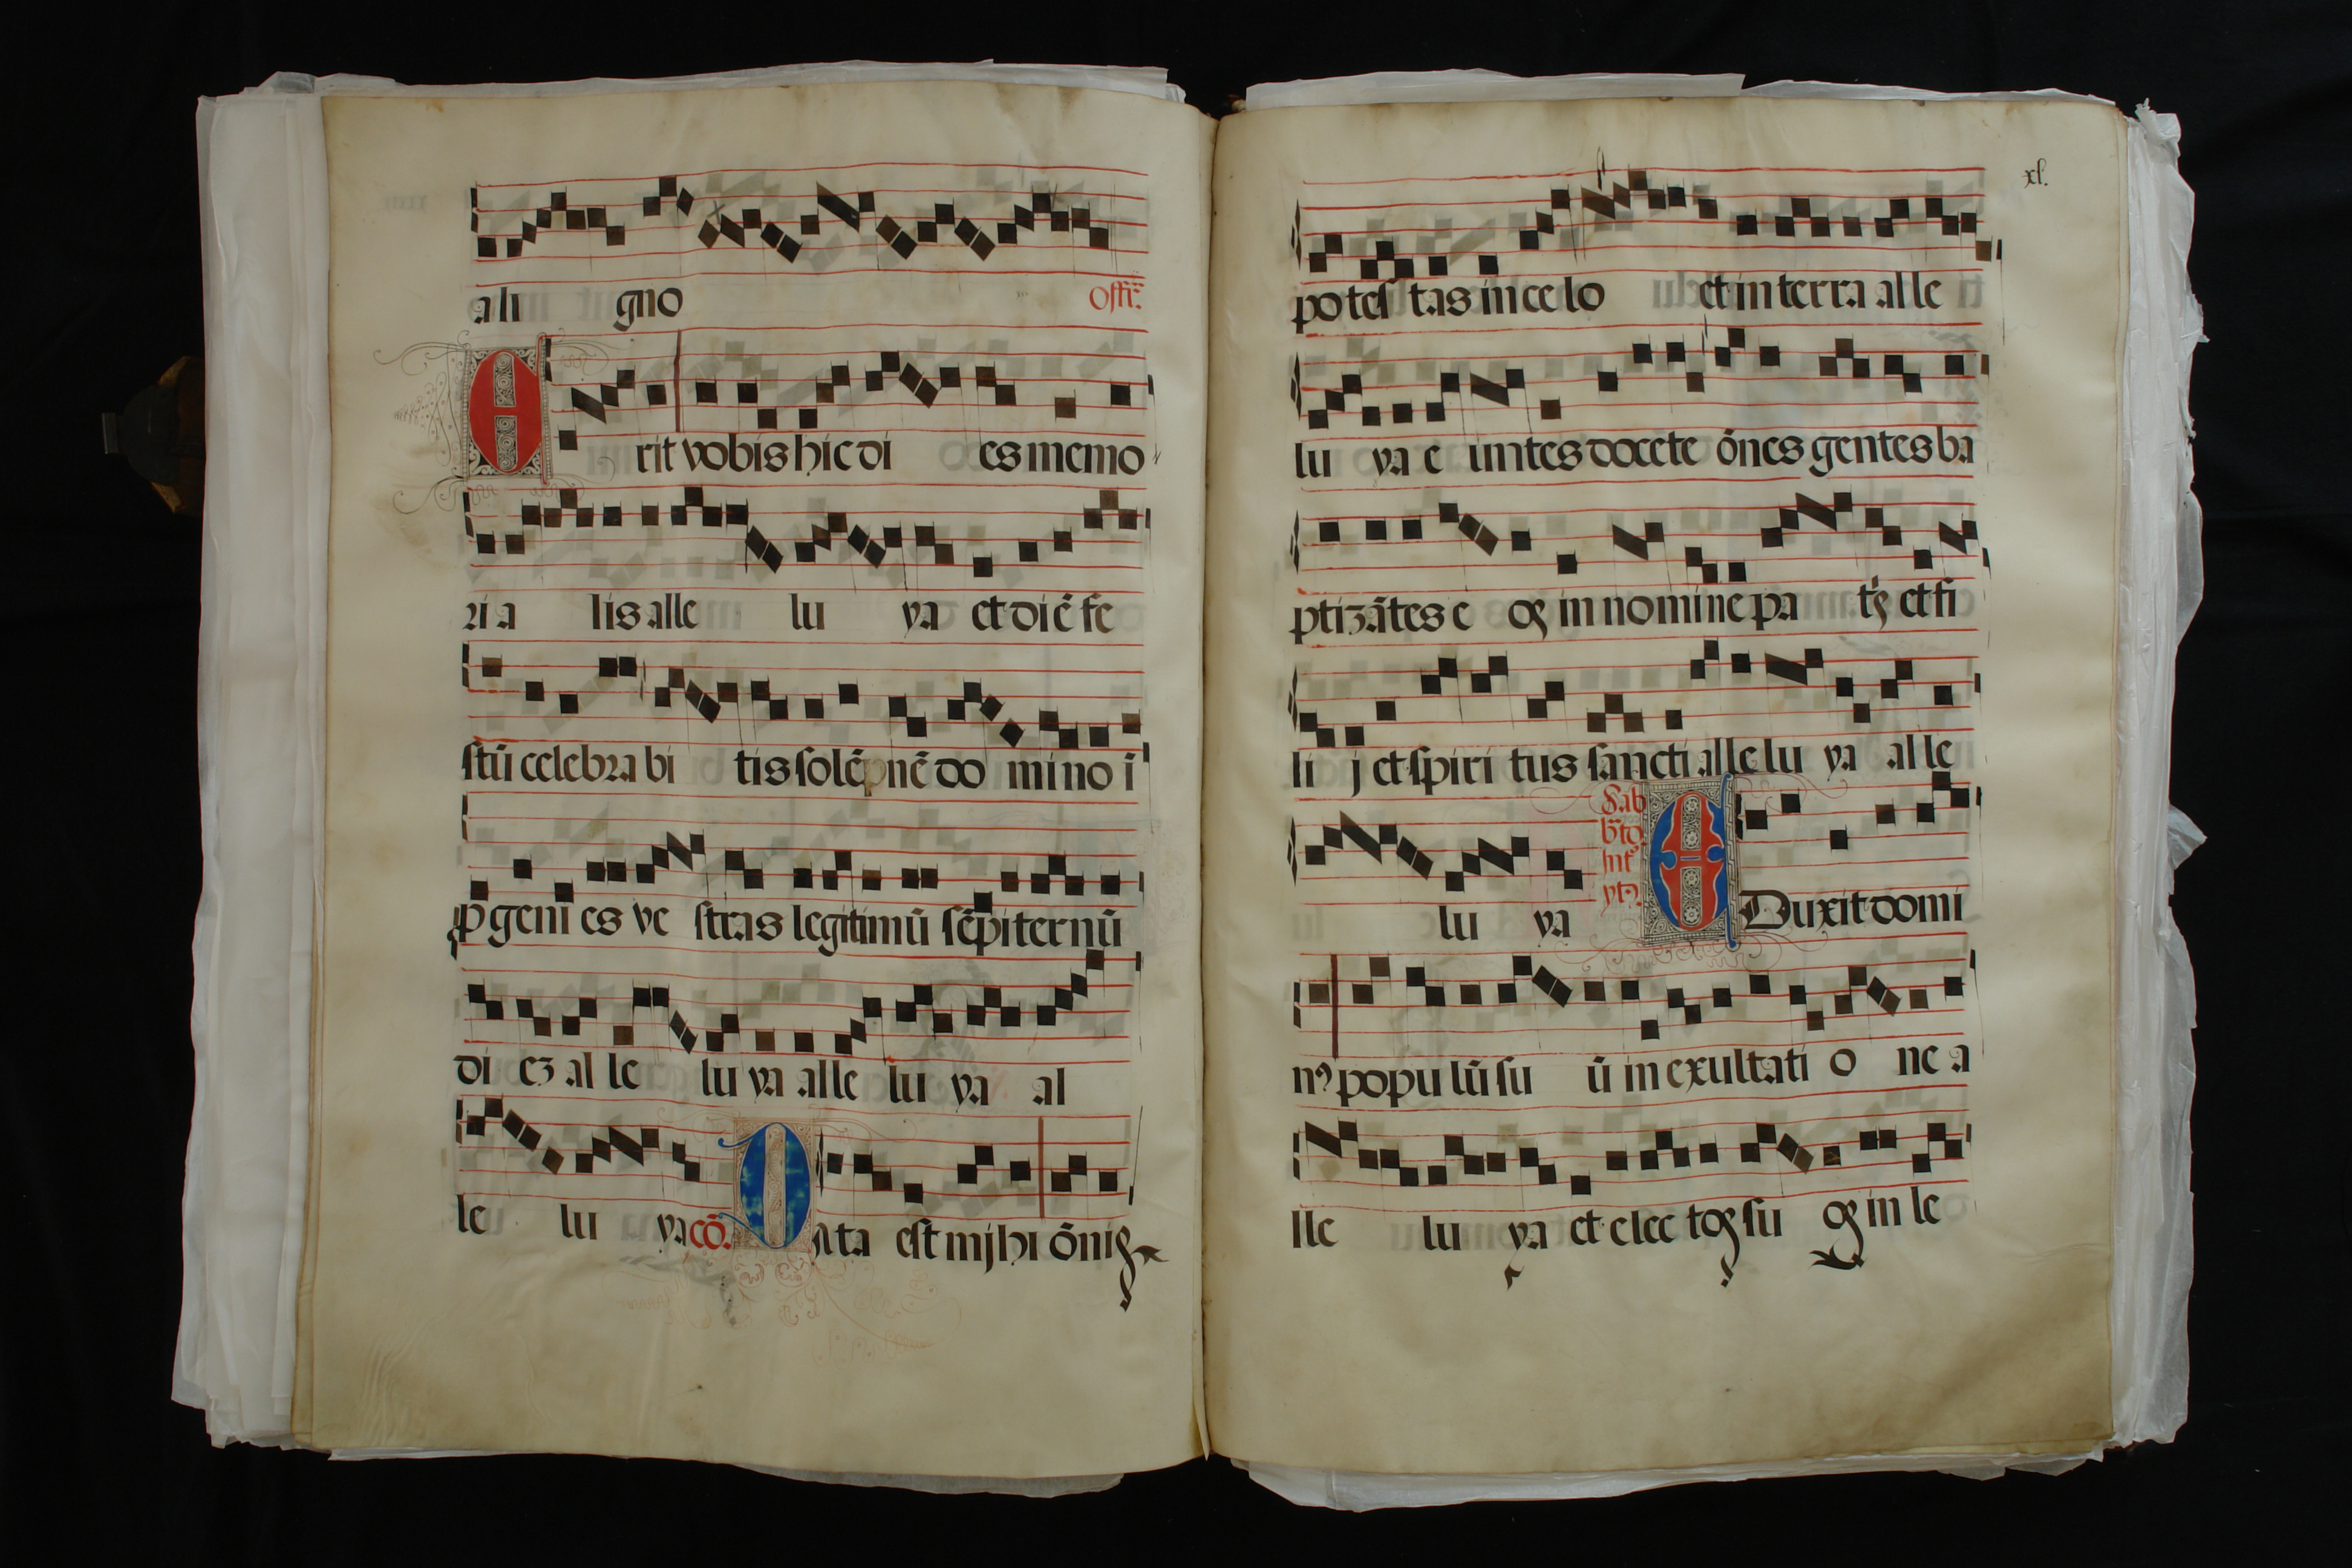 a li gno Offr̃.
E rit vobis hic di es memo
ri a lis alle lu ya et diẽ fe
stũ celebra bi tis solẽpnẽ do mino ĩ
ꝓgeni es ve stras legitimũ sẽpiternũ
di eʒ al le lu ya alle lu ya al
le lu ya cõ. D ata est mjhi õnis
xl.
po tes tas in ce lo et in terra alle
lu ya e untes docete õnes gentes ba
ptizãtes e oꝝ in nomine pa tꝭ et fi
li j et spiri tus sancti alle lu ya alle
lu ya Sab b̃to. int̃ ytꝫ E Duxit domi
nꝰ popu lũ su ũ in exultati o ne a
lle lu ya et elec toꝝ su oꝝ in le